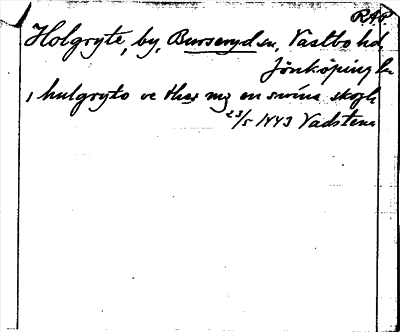 RAP.
Holgryte, by, Burseryd sn, Vastbo hd,
Jönköping ln
i hulgryto ve thes mz en swina skogh
23/5 1443 Vadstena